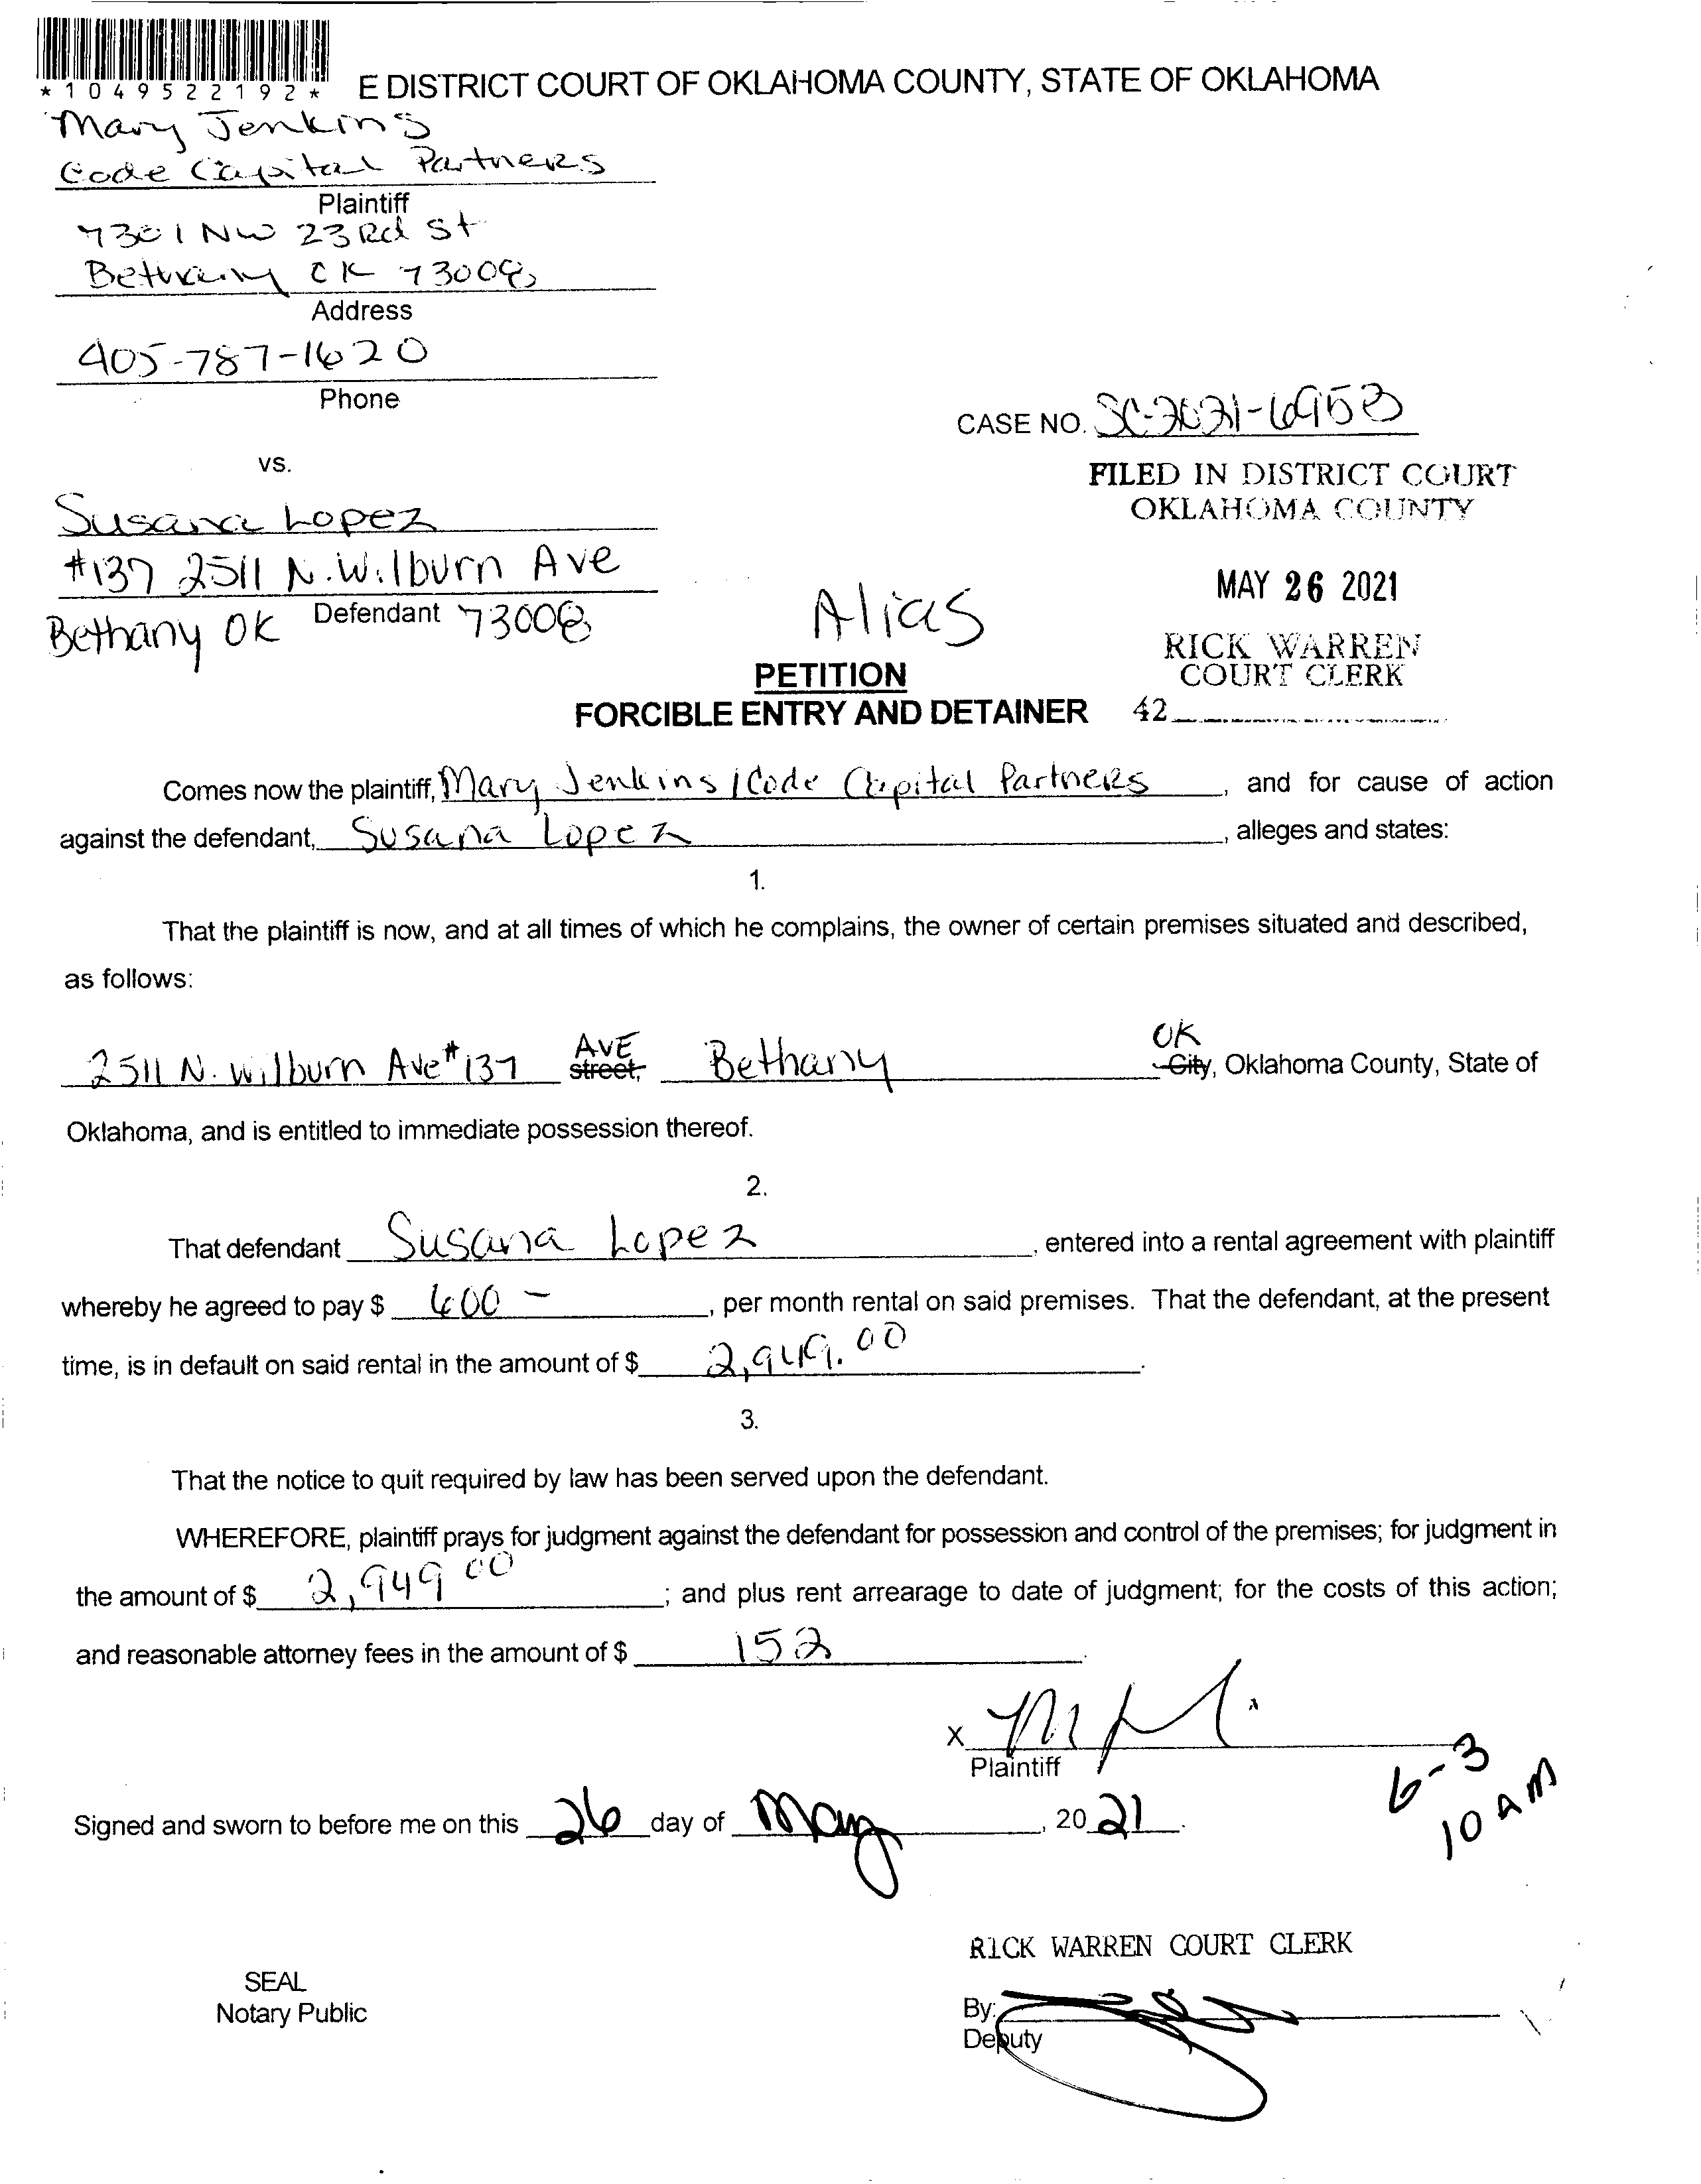 *1049522192*
E DISTRICT COURT OF OKLAHOMA COUNTY, STATE OF OKLAHOMA
Mary Jenkins
Code Capital Partners
Plaintiff
7301 NW 23Rd St
Bethany OK 73008
Address
405-787-1620
Phone
CASE NO. SC-2021-6953
vs.
FILED IN DISTRICT COURT
OKLAHOMA COUNTY
Susana Lopez
#137 2511 N. Wilburn Ave
MAY 26 2021
Bethany OK Defendant 73008
Alias
RICK WARREN
COURT CLERK
PETITION
FORCIBLE ENTRY AND DETAINER
42
Comes now the plaintiff, Mary Jenkins / Code Capital Partners, and for cause of action
against the defendant, Susana Lopez, alleges and states:
1.
That the plaintiff is now, and at all times of which he complains, the owner of certain premises situated and described,
as follows:
2511 N. Wilburn Ave #137 AVE street, Bethany OK City, Oklahoma County, State of
Oklahoma, and is entitled to immediate possession thereof.
2.
That defendant Susana Lopez, entered into a rental agreement with plaintiff
whereby he agreed to pay $ 600 -, per month rental on said premises. That the defendant, at the present
time, is in default on said rental in the amount of $ 2,949.00.
3.
That the notice to quit required by law has been served upon the defendant.
WHEREFORE, plaintiff prays for judgment against the defendant for possession and control of the premises; for judgment in
the amount of $ 2,949 00; and plus rent arrearage to date of judgment; for the costs of this action;
and reasonable attorney fees in the amount of $ 152.
X
Plaintiff
6-3
10 AM
Signed and sworn to before me on this 26 day of May, 2021.
RICK WARREN COURT CLERK
SEAL
Notary Public
By:
Deputy